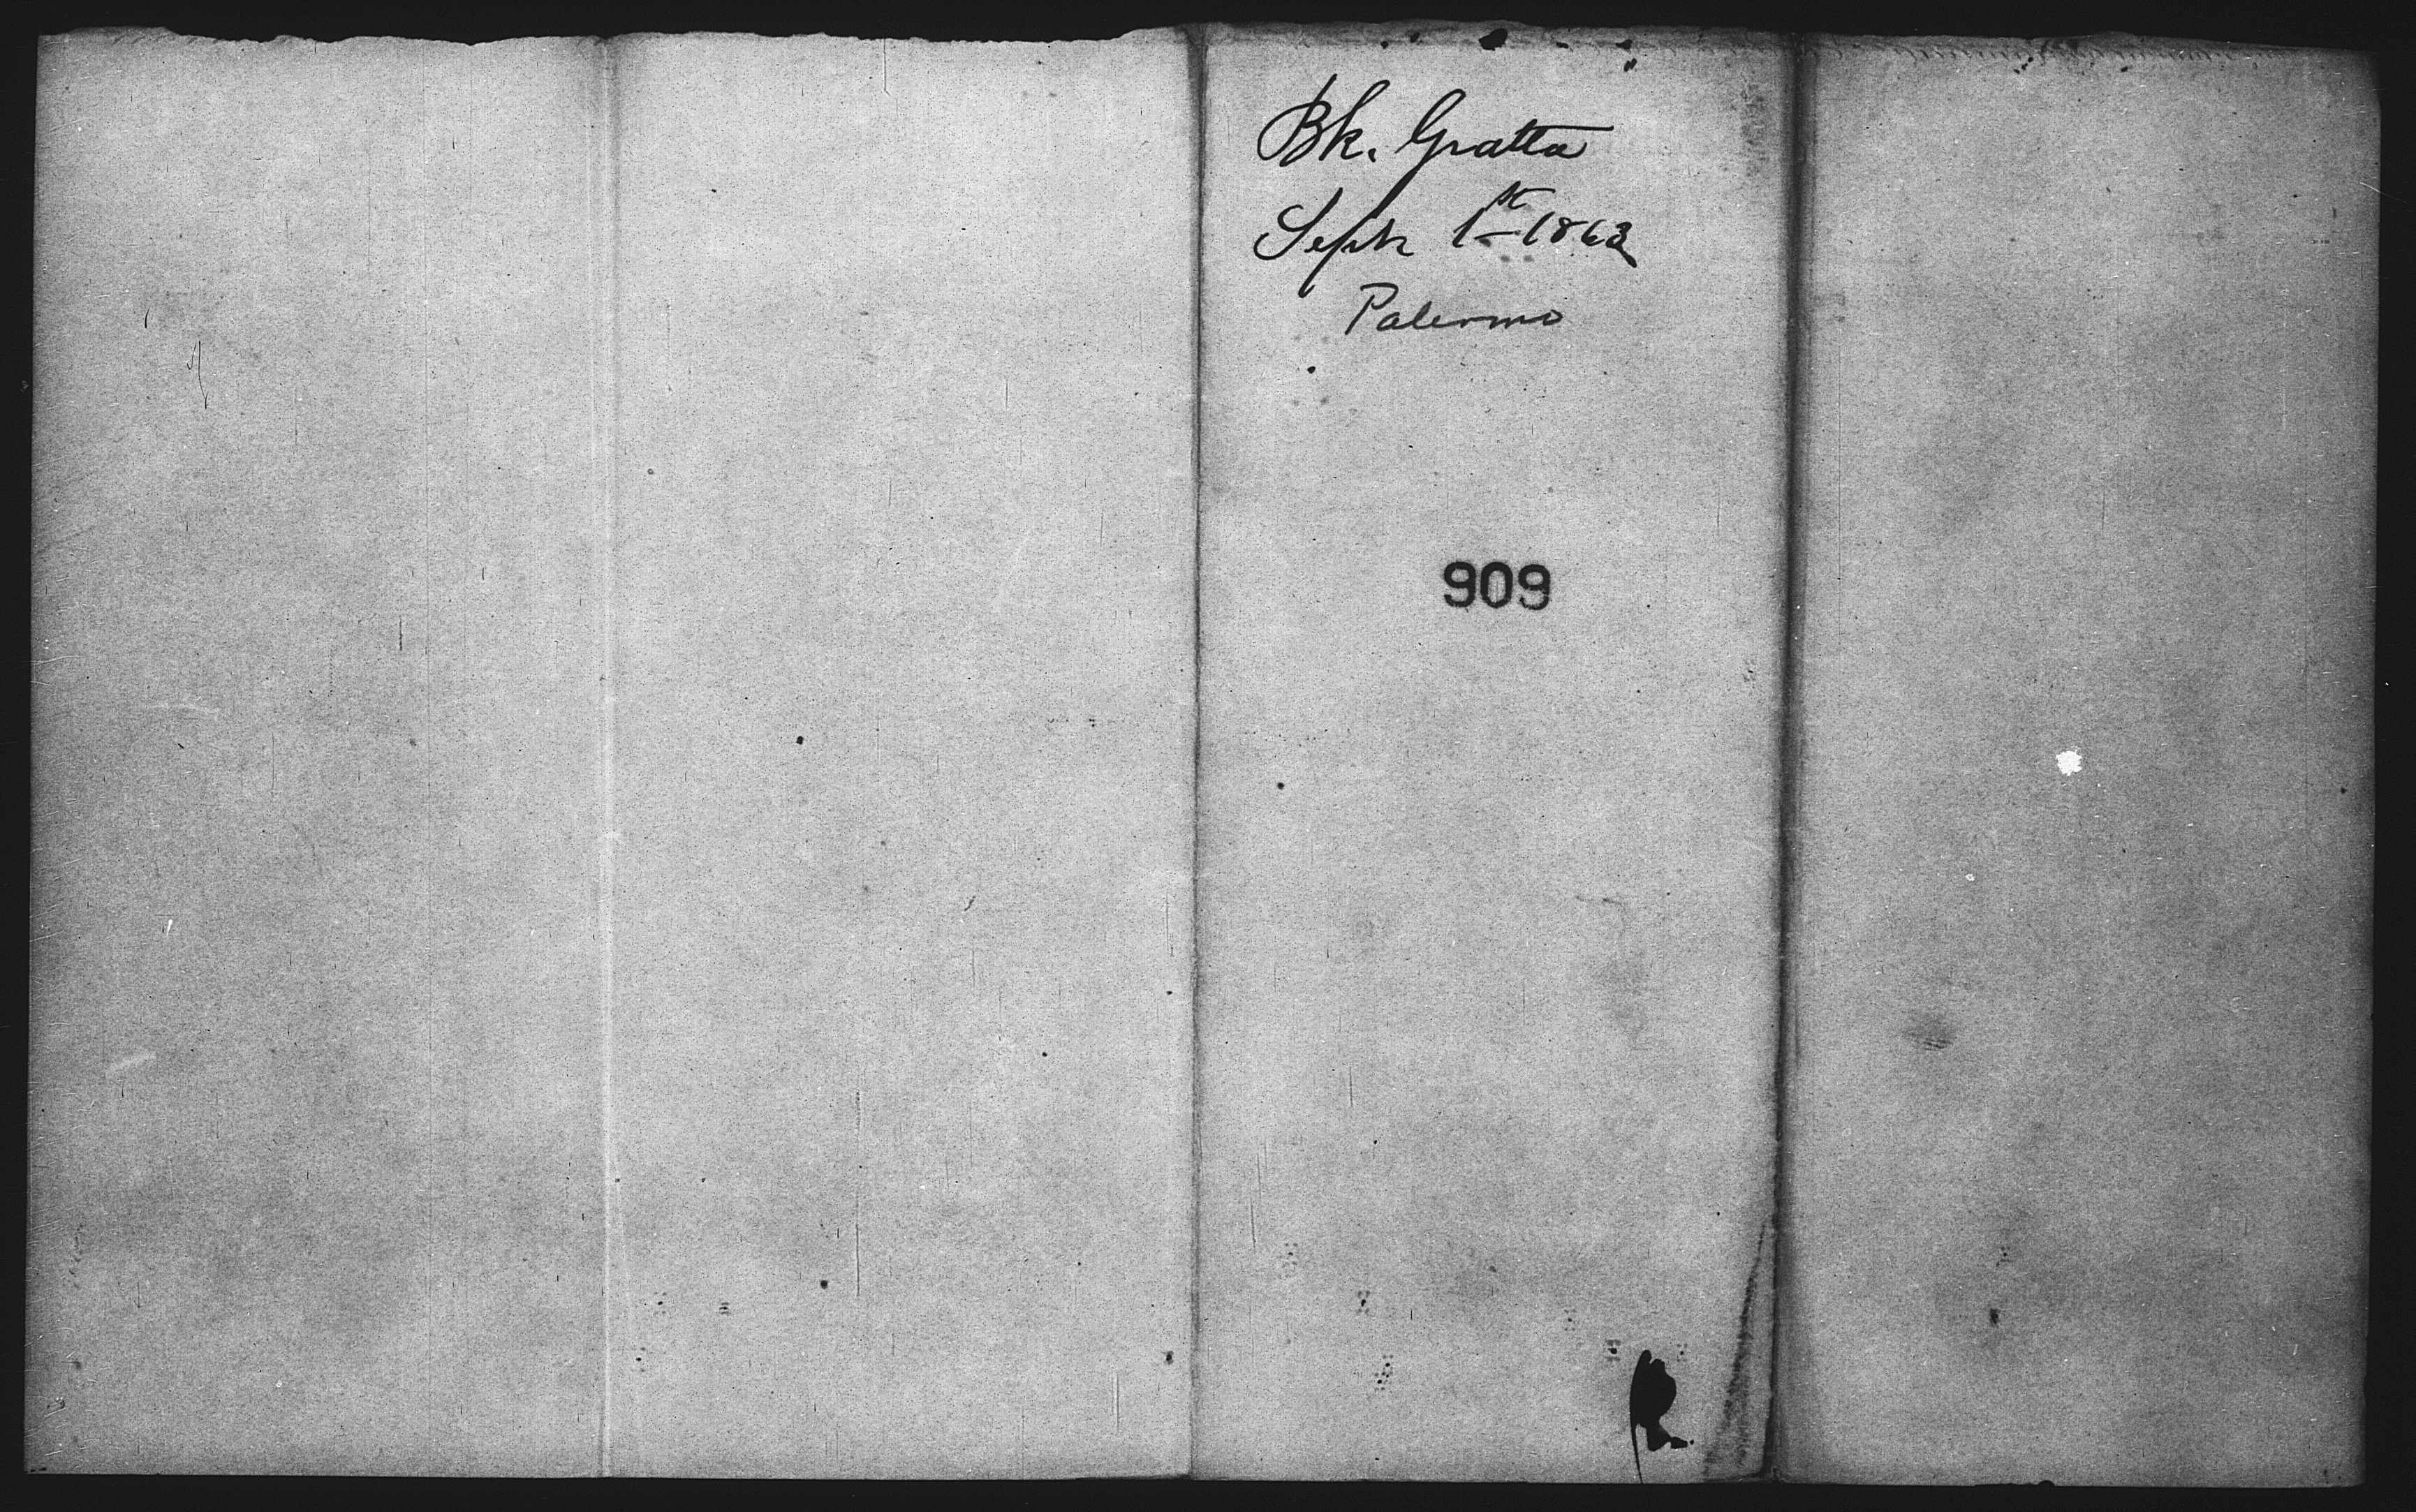 Bk. Gratta
Sept 1st 1863
Palermo
909